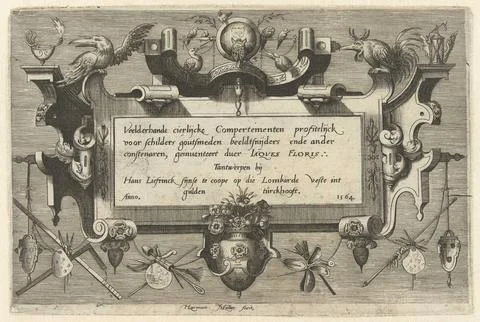 Veelderhande cierlijcke Compertementen profitelijck
voor schilders goutsmeden beeldtsnijders ende ander
constenaren, geinventeert duer IAQVES FLORIS
Tantwerpen bij
Hans Liefrinck syn se te coope op die Lombarde veste int
Anno. gulden türckhooft. 1564.
Herman Muller fecit.